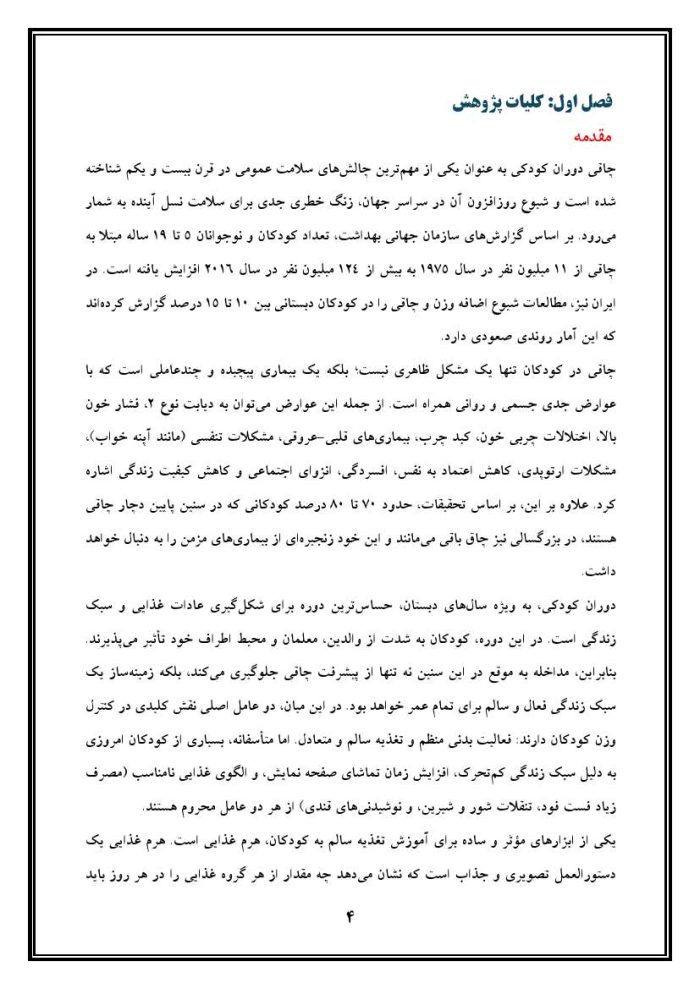 فصل اول: کلیات پژوهش
مقدمه
چاقی دوران کودکی به عنوان یکی از مهم‌ترین چالش‌های سلامت عمومی در قرن بیست و یکم شناخته
شده است و شیوع روزافزون آن در سراسر جهان، زنگ خطری جدی برای سلامت نسل آینده به شمار
می‌رود. بر اساس گزارش‌های سازمان جهانی بهداشت، تعداد کودکان و نوجوانان ۵ تا ۱۹ ساله مبتلا به
چاقی از ۱۱ میلیون نفر در سال ۱۹۷۵ به بیش از ۱۲۴ میلیون نفر در سال ۲۰۱۶ افزایش یافته است. در
ایران نیز، مطالعات شیوع اضافه وزن و چاقی را در کودکان دبستانی بین ۱۰ تا ۱۵ درصد گزارش کرده‌اند
که این آمار روندی صعودی دارد.
چاقی در کودکان تنها یک مشکل ظاهری نیست؛ بلکه یک بیماری پیچیده و چندعاملی است که با
عوارض جدی جسمی و روانی همراه است. از جمله این عوارض می‌توان به دیابت نوع ۲، فشار خون
بالا، اختلالات چربی خون، کبد چرب، بیماری‌های قلبی-عروقی، مشکلات تنفسی (مانند آپنه خواب)،
مشکلات ارتوپدی، کاهش اعتماد به نفس، افسردگی، انزوای اجتماعی و کاهش کیفیت زندگی اشاره
کرد. علاوه بر این، بر اساس تحقیقات، حدود ۷۰ تا ۸۰ درصد کودکانی که در سنین پایین دچار چاقی
هستند، در بزرگسالی نیز چاق باقی می‌مانند و این خود زنجیره‌ای از بیماری‌های مزمن را به دنبال خواهد
داشت.
دوران کودکی، به ویژه سال‌های دبستان، حساس‌ترین دوره برای شکل‌گیری عادات غذایی و سبک
زندگی است. در این دوره، کودکان به شدت از والدین، معلمان و محیط اطراف خود تأثیر می‌پذیرند.
بنابراین، مداخله به موقع در این سنین نه تنها از پیشرفت چاقی جلوگیری می‌کند، بلکه زمینه‌ساز یک
سبک زندگی فعال و سالم برای تمام عمر خواهد بود. در این میان، دو عامل اصلی نقش کلیدی در کنترل
وزن کودکان دارند: فعالیت بدنی منظم و تغذیه سالم و متعادل. اما متأسفانه، بسیاری از کودکان امروزی
به دلیل سبک زندگی کم‌تحرک، افزایش زمان تماشای صفحه نمایش، و الگوی غذایی نامناسب (مصرف
زیاد فست فود، تنقلات شور و شیرین، و نوشیدنی‌های قندی) از هر دو عامل محروم هستند.
یکی از ابزارهای مؤثر و ساده برای آموزش تغذیه سالم به کودکان، هرم غذایی است. هرم غذایی یک
دستورالعمل تصویری و جذاب است که نشان می‌دهد چه مقدار از هر گروه غذایی را در هر روز باید
۴